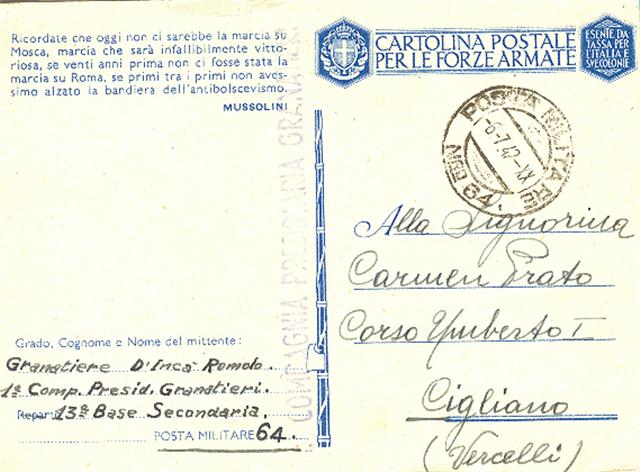 Ricordate che oggi non ci sarebbe la marcia su
Mosca, marcia che sarà infallibilmente vitto-
riosa, se venti anni prima non ci fosse stata la
marcia su Roma, se primi tra i primi non aves-
simo alzato la bandiera dell'antibolscevismo.
MUSSOLINI
CARTOLINA POSTALE
PER LE FORZE ARMATE
ESENTE DA
TASSA PER
L'ITALIA E
SUE COLONIE
POSTA MILITARE
6-7.42-XX
N. 64.
COMPAGNIA PRESIDIARIA
Alla Signorina
Carmen Prato
Corso Umberto I
Cigliano
(Vercelli)
Grado, Cognome e Nome del mittente:
Granatiere D'Incà Romolo.
1ª Comp. Presid. Granatieri.
Reparto 13ª Base Secondaria.
POSTA MILITARE 64.